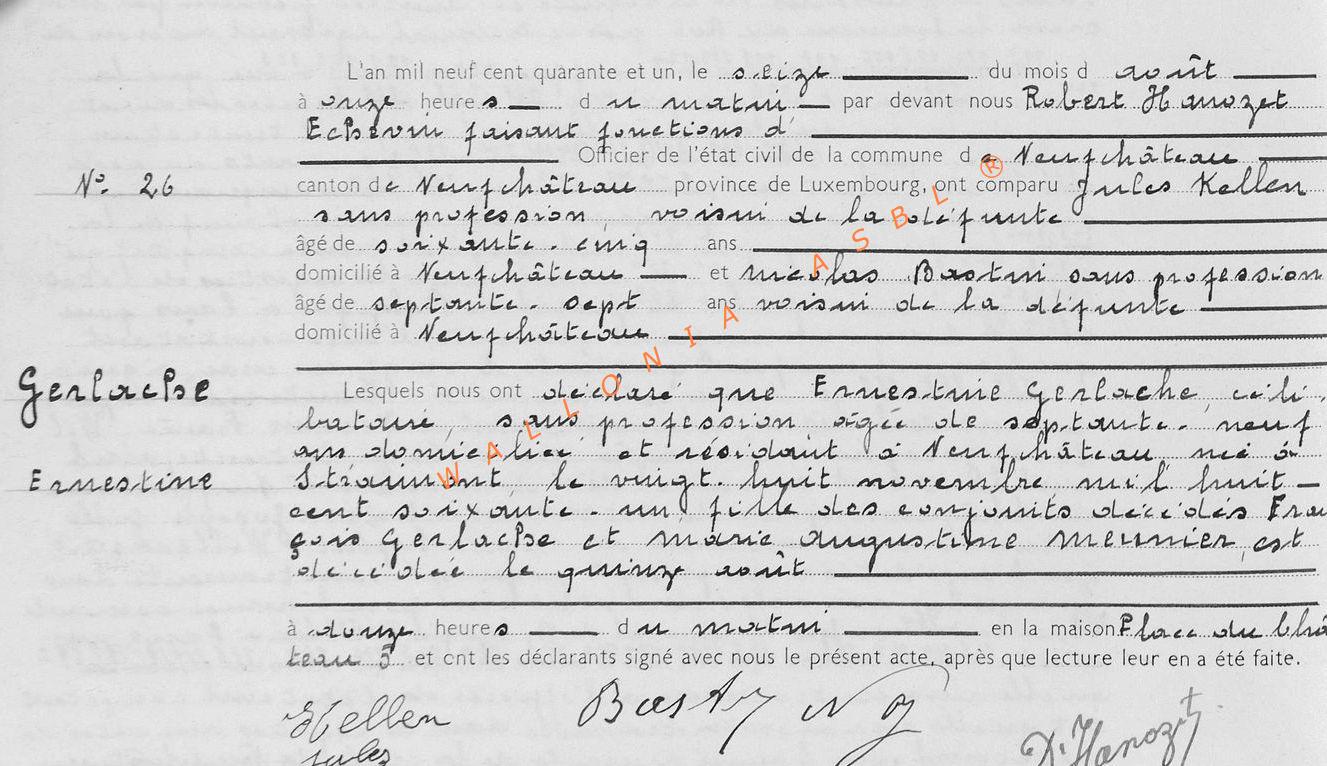 L'an mil neuf cent quarante et un, le seize du mois d août
à onze heures du matin par devant nous Robert Hanozet
Echevin faisant fonctions d'
Officier de l'état civil de la commune de Neufchâteau
N° 26
canton de Neufchâteau province de Luxembourg, ont comparu Jules Kellen
sans profession, voisin de la défunte
âgé de soixante-cinq ans
domicilié à Neufchâteau et Nicolas Bastin sans profession
âgé de septante-sept ans voisin de la défunte
domicilié à Neufchâteau
Gerlache
Lesquels nous ont déclaré que Ernestine Gerlache, céli-
bataire, sans profession âgée de septante-neuf
ans domiciliée et résidant à Neufchâteau, née à
Ernestine
Straimont, le vingt-huit novembre mil huit
cent soixante-un, fille des conjoints décédés Fran
çois Gerlache et Marie Augustine Meunier, est
décédée le quinze août
à douze heures du matin en la maison Place du Châ
teau 5 et ont les déclarants signé avec nous le présent acte, après que lecture leur en a été faite.
WALLONIA ASBL ®
Kellen
Jules
Bastin
Hanozet